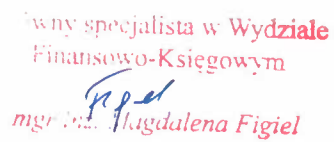 wny specjalista w Wydziale
Finansowo-Księgowym
Figiel
mgr inż. Magdalena Figiel